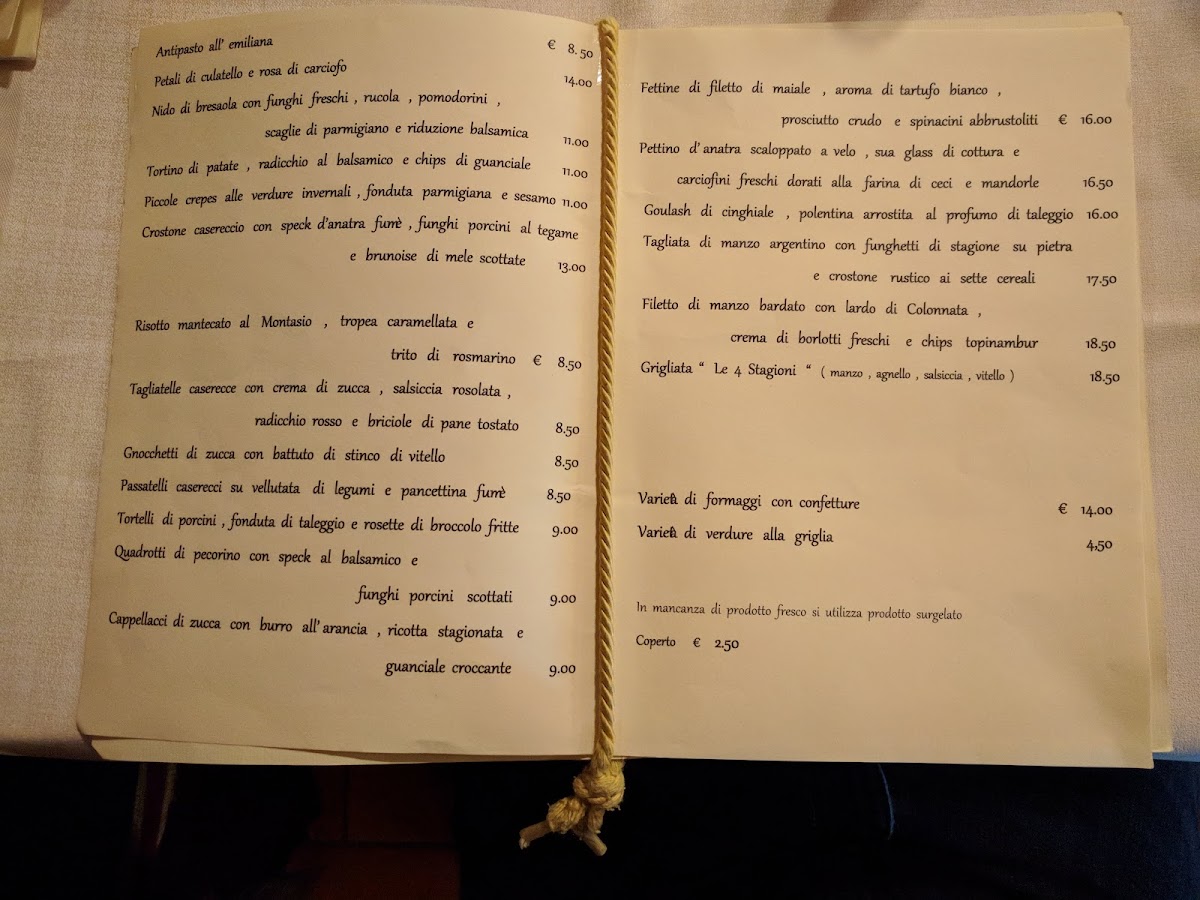 Antipasto all' emiliana € 8.50
Petali di culatello e rosa di carciofo 14.00
Nido di bresaola con funghi freschi , rucola , pomodorini ,
scaglie di parmigiano e riduzione balsamica 11.00
Tortino di patate , radicchio al balsamico e chips di guanciale 11.00
Piccole crepes alle verdure invernali , fonduta parmigiana e sesamo 11.00
Crostone casereccio con speck d'anatra fumè , funghi porcini al tegame
e brunoise di mele scottate 13.00
Risotto mantecato al Montasio , tropea caramellata e
trito di rosmarino € 8.50
Tagliatelle caserecce con crema di zucca , salsiccia rosolata ,
radicchio rosso e briciole di pane tostato 8.50
Gnocchetti di zucca con battuto di stinco di vitello 8.50
Passatelli caserecci su vellutata di legumi e pancettina fumè 8.50
Tortelli di porcini , fonduta di taleggio e rosette di broccolo fritte 9.00
Quadrotti di pecorino con speck al balsamico e
funghi porcini scottati 9.00
Cappellacci di zucca con burro all' arancia , ricotta stagionata e
guanciale croccante 9.00
Fettine di filetto di maiale , aroma di tartufo bianco ,
prosciutto crudo e spinacini abbrustoliti € 16.00
Pettino d'anatra scaloppato a velo , sua glass di cottura e
carciofini freschi dorati alla farina di ceci e mandorle 16.50
Goulash di cinghiale , polentina arrostita al profumo di taleggio 16.00
Tagliata di manzo argentino con funghetti di stagione su pietra
e crostone rustico ai sette cereali 17.50
Filetto di manzo bardato con lardo di Colonnata ,
crema di borlotti freschi e chips topinambur 18.50
Grigliata " Le 4 Stagioni " ( manzo , agnello , salsiccia , vitello ) 18.50
Varietà di formaggi con confetture € 14.00
Varietà di verdure alla griglia 4,50
In mancanza di prodotto fresco si utilizza prodotto surgelato
Coperto € 2.50